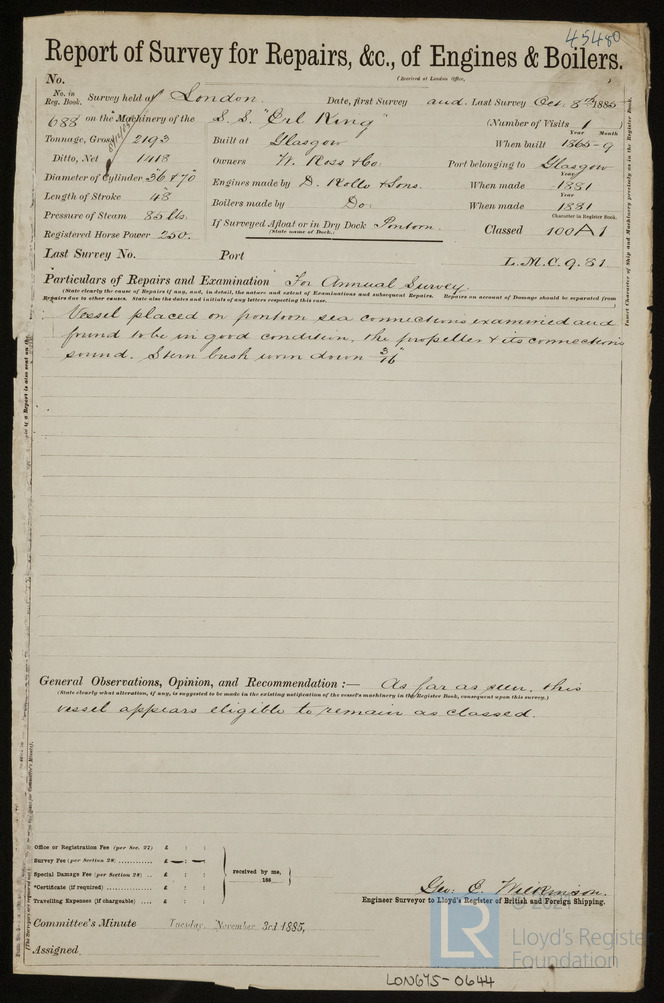 45480
Report of Survey for Repairs, &c., of Engines & Boilers.
(Received at London Office,
No.
No. in Reg. Book. Survey held at London. Date, first Survey and Last Survey Oct. 8th 1885
688 on the Machinery of the S. S. "Erl King" (Number of Visits 1)
Tonnage, Gross 2193 Built at Glasgow When built Year 1865 Month 9
Ditto, Net 1418 Owners W. Ross & Co. Port belonging to Glasgow
Diameter of Cylinder 36 & 70 Engines made by D. Rollo & Sons. When made Year 1881
Length of Stroke 48 Boilers made by Do. When made Year 1881
Pressure of Steam 85 lbs. If Surveyed Afloat or in Dry Dock Pontoon. Classed Character in Register Book. 100 A 1
(State name of Dock.)
Registered Horse Power 250.
Last Survey No. Port L.M.C. 9. 81
Particulars of Repairs and Examination For Annual Survey.
(State clearly the cause of Repairs if any, and, in detail, the nature and extent of Examinations and subsequent Repairs. Repairs on account of Damage should be separated from
Repairs due to other causes. State also the dates and initials of any letters respecting this case.
Vessel placed on pontoon sea connections examined and
found to be in good condition, the propeller & its connections
sound. Stern bush worn down 3/16"
General Observations, Opinion, and Recommendation :— As far as seen, this
(State clearly what alteration, if any, is suggested to be made in the existing notification of the vessel's machinery in the Register Book, consequent upon this survey.)
vessel appears eligible to remain as classed.
Office or Registration Fee (per Sec. 27) £ : :
Survey Fee (per Section 28) ............ £ — : —
Special Damage Fee (per Section 28) .. £ : :
*Certificate (if required) ............ £ : :
Travelling Expenses (if chargeable) .... £ : :
received by me,
188
Geo. E. Wilkinson.
Engineer Surveyor to Lloyd's Register of British and Foreign Shipping.
Committee's Minute Tuesday, November 3rd 1885,
Assigned
Insert Character of Ship and Machinery precisely as in the Register Book.
LR
© 2021
Lloyd's Register
Foundation
LON675-0644